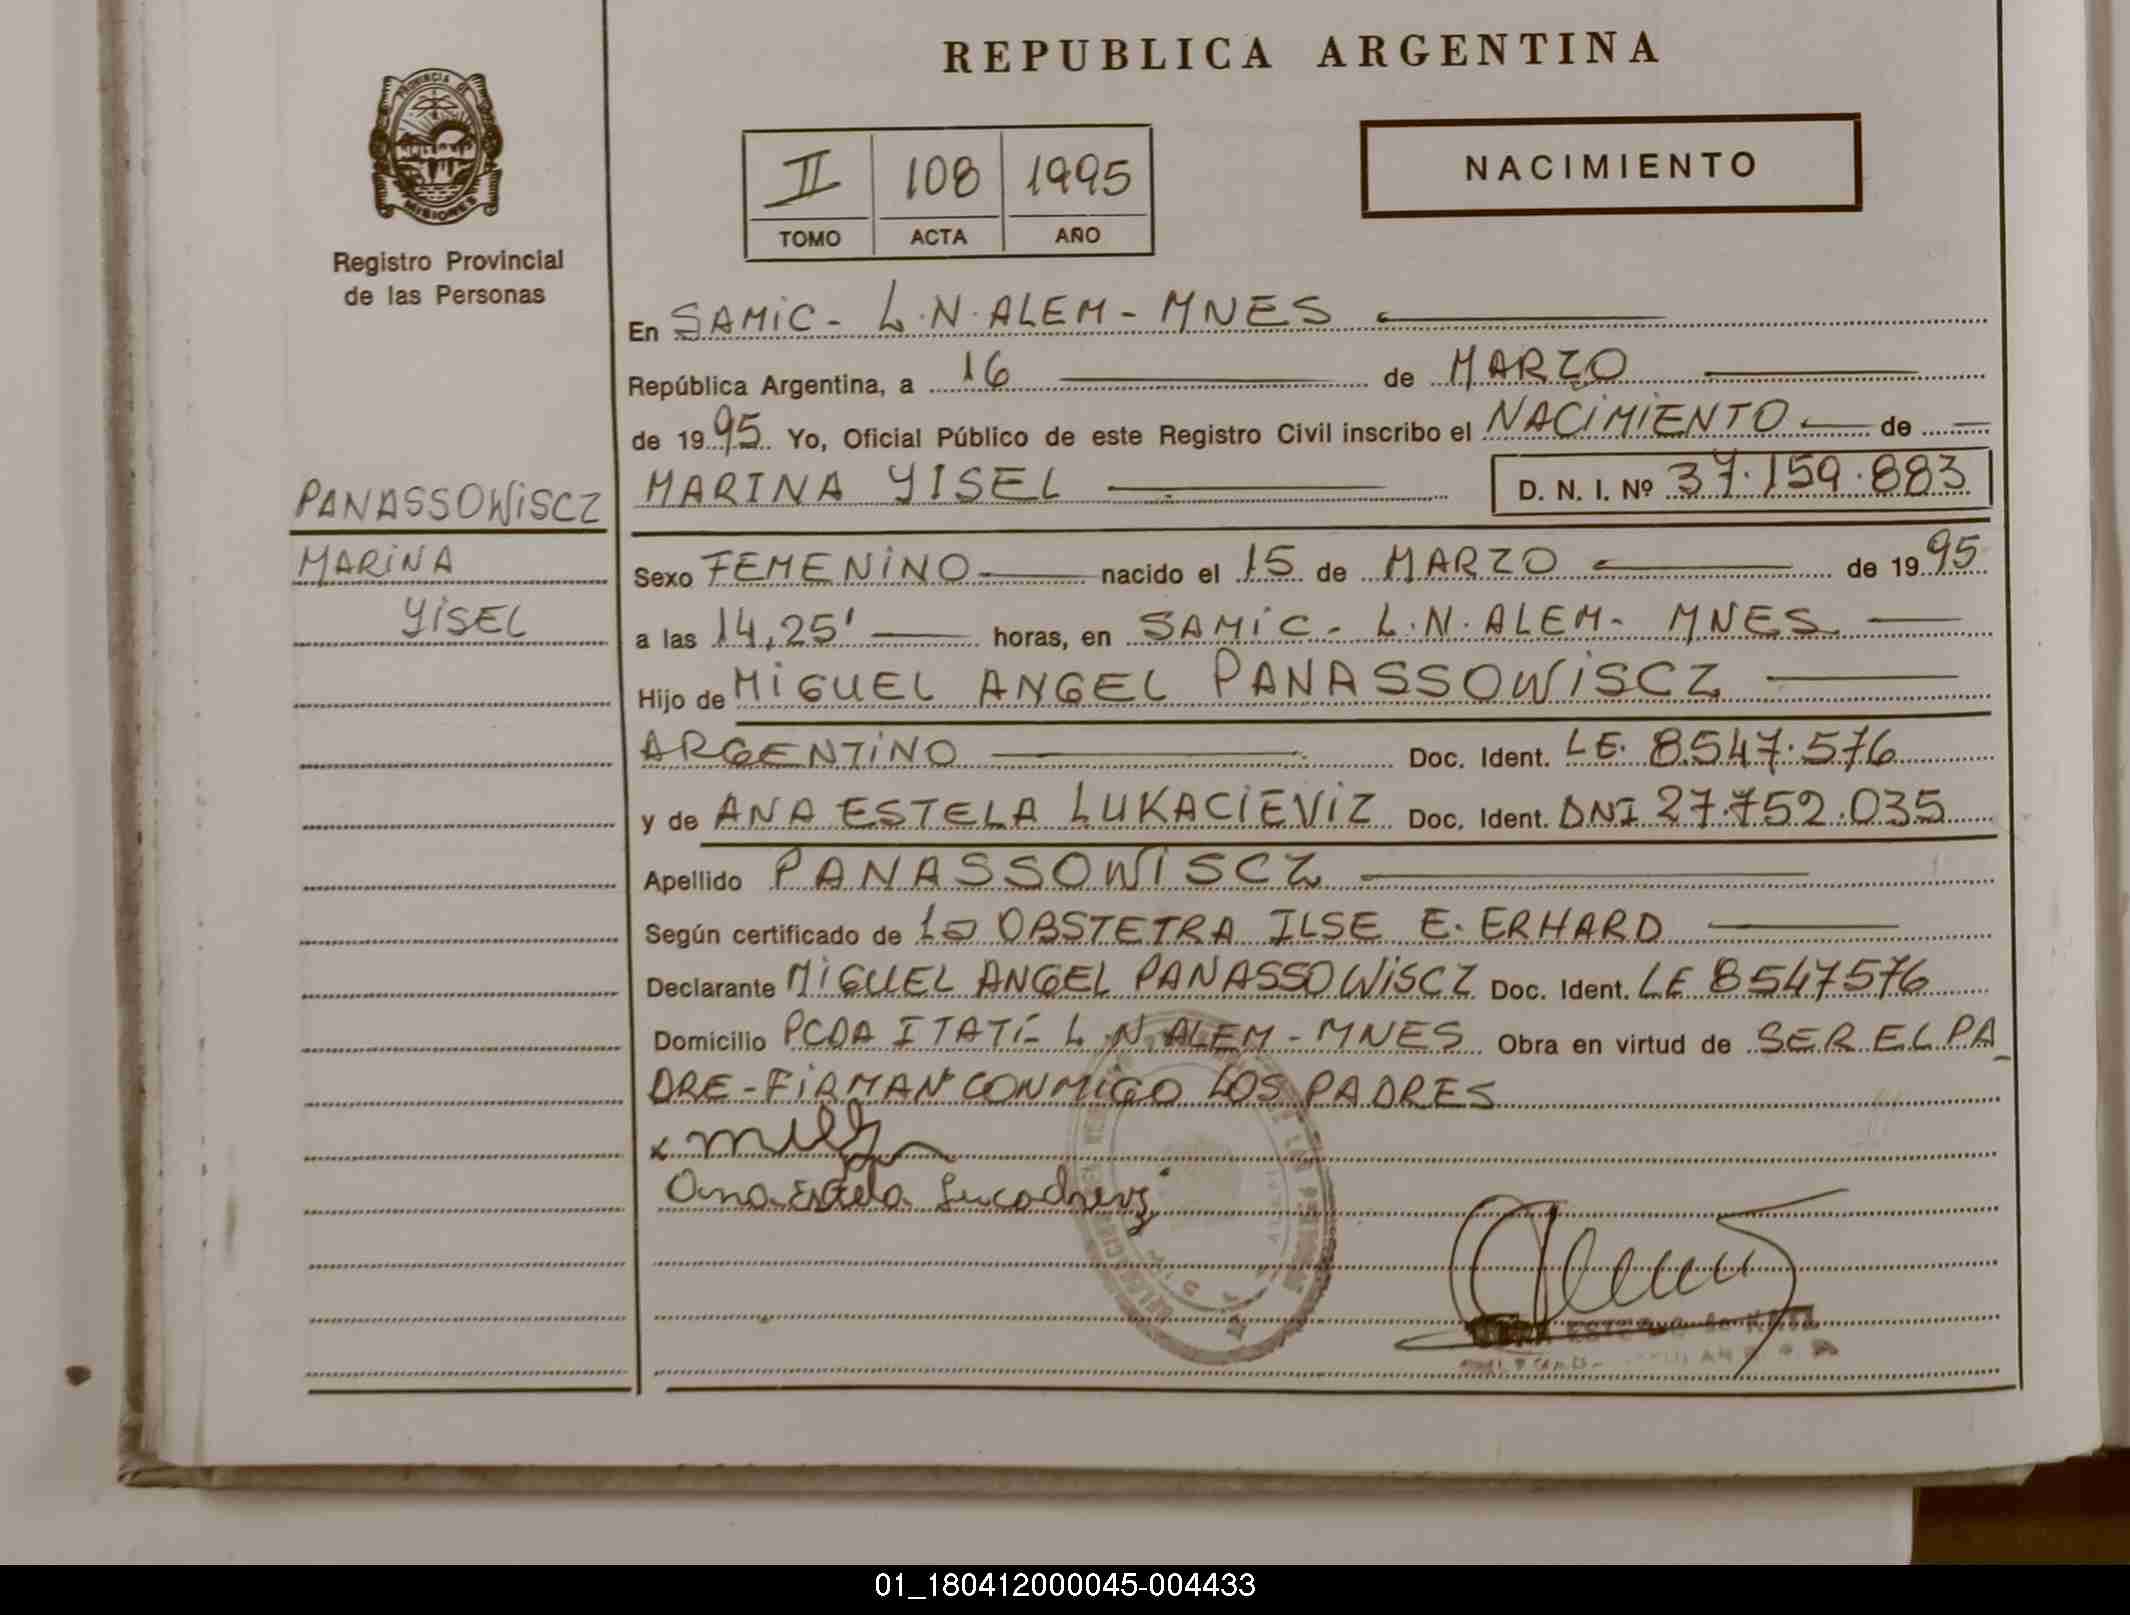 REPUBLICA ARGENTINA
PROVINCIA DE
MISIONES
Registro Provincial
de las Personas
II 108 1995
TOMO ACTA AÑO
NACIMIENTO
En SAMIC - L.N. ALEM - MNES
República Argentina, a 16 de MARZO
de 1995 Yo, Oficial Público de este Registro Civil inscribo el NACIMIENTO de
PANASSOWISCZ
MARINA YISEL D. N. I. Nº 37.159.883
MARINA
Sexo FEMENINO nacido el 15 de MARZO de 1995
YISEL
a las 14,25' horas, en SAMIC - L.N. ALEM - MNES
Hijo de MIGUEL ANGEL PANASSOWISCZ
ARGENTINO Doc. Ident. LE. 8547.576
y de ANA ESTELA LUKACIEVIZ Doc. Ident. DNI 27.752.035
Apellido PANASSOWISCZ
Según certificado de la OBSTETRA ILSE E. ERHARD
Declarante MIGUEL ANGEL PANASSOWISCZ Doc. Ident. LE 8547576
Domicilio PCDA ITATI - L.N. ALEM - MNES Obra en virtud de SER EL PA_
DRE - FIRMAN CONMIGO LOS PADRES
Ana Estela
01_180412000045-004433